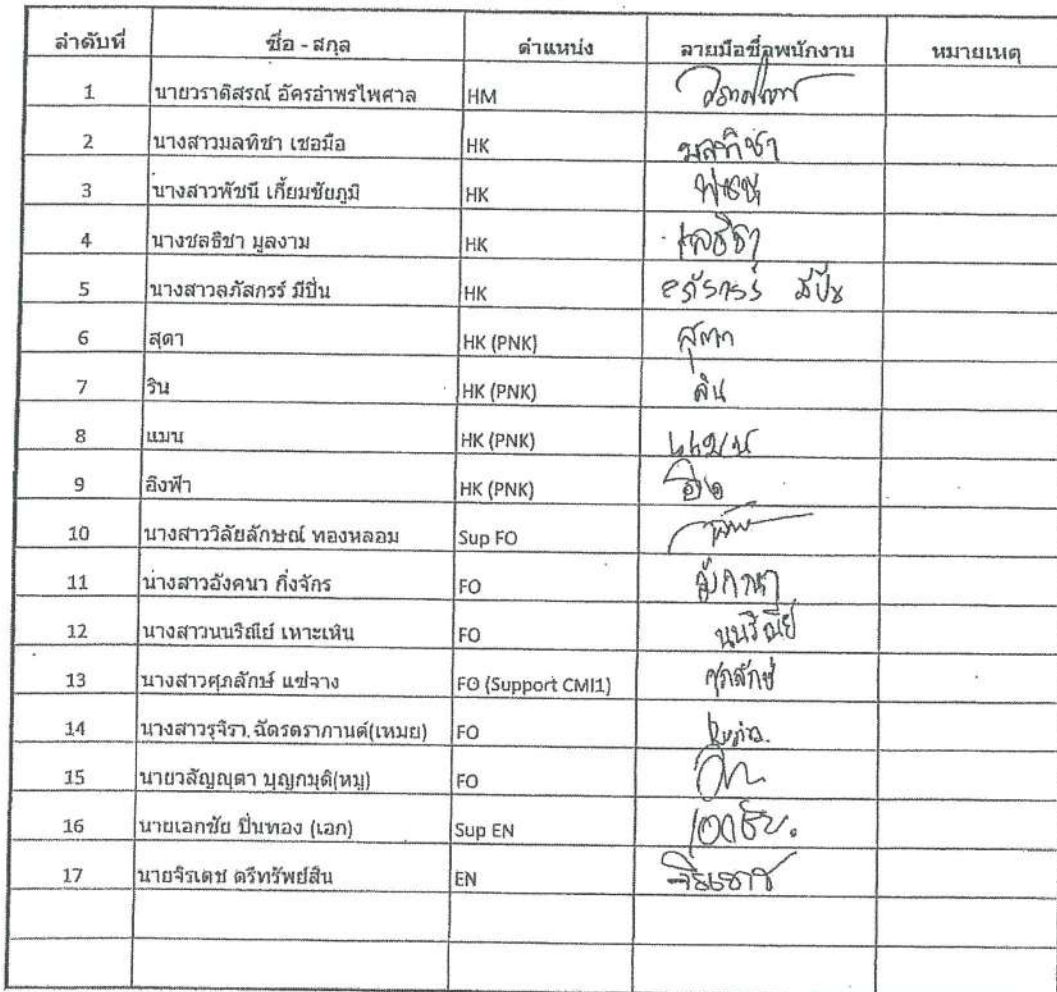 ลำดับที่ ชื่อ - สกุล ตำแหน่ง ลายมือชื่อพนักงาน หมายเหตุ
1 นายวราดิสรณ์ อัครอำพรไพศาล HM
2 นางสาวมลทิชา เชอมือ HK มลทิชา
3 นางสาวพัชนี เกี้ยมชัยภูมิ HK
4 นางชลธิชา มูลงาม HK ชลธิชา
5 นางสาวลภัสกรร์ มีปิ่น HK ลภัสกรร์ มีปิ่น
6 สุดา HK (PNK) สุดา
7 ริน HK (PNK) ลิน
8 แมน HK (PNK) แมน
9 อิงฟ้า HK (PNK) อิง
10 นางสาววิลัยลักษณ์ ทองหลอม Sup FO
11 นางสาวอังคนา กิ่งจักร FO อังคณา
12 นางสาวนนริณีย์ เหาะเหิน FO นนริณีย์
13 นางสาวศุภลักษ์ แซ่จาง FO (Support CMI1) ศุภลักษ์
14 นางสาวรุจิรา ฉัตรตราภานต์(เหมย) FO Rujira.
15 นายวลัญญุตา บุญกมุติ(หมู) FO
16 นายเอกชัย ปิ่นทอง (เอก) Sup EN เอกชัย.
17 นายจิรเดช ตรีทรัพย์สิน EN จิรเดช